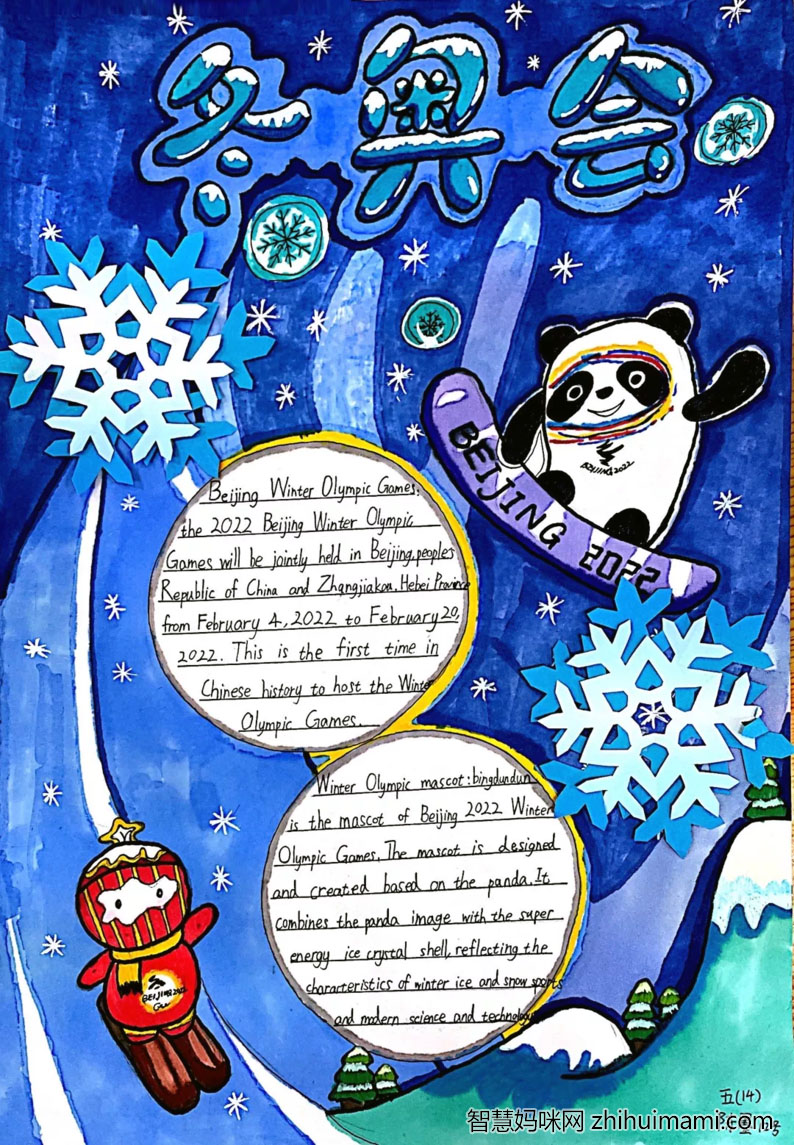 冬奥会
BEIJING 2022
BEIJING 2022
Beijing Winter Olympic Games,
the 2022 Beijing Winter Olympic
Games will be jointly held in Beijing,peoples
Republic of China and Zhangjiakou, Hebei Province
from February 4,2022 to February 20,
2022. This is the first time in
Chinese history to host the Winter
Olympic Games.
Winter Olympic mascot:bingdundun
is the mascot of Beijing 2022 Winter
Olympic Games. The mascot is designed
and created based on the panda. It
combines the panda image with the super
energy ice crystal shell, reflecting the
characteristics of winter ice and snow sports
and modern science and technology
BEIJING 2022
五(14)
智慧妈咪网 zhihuimami.com